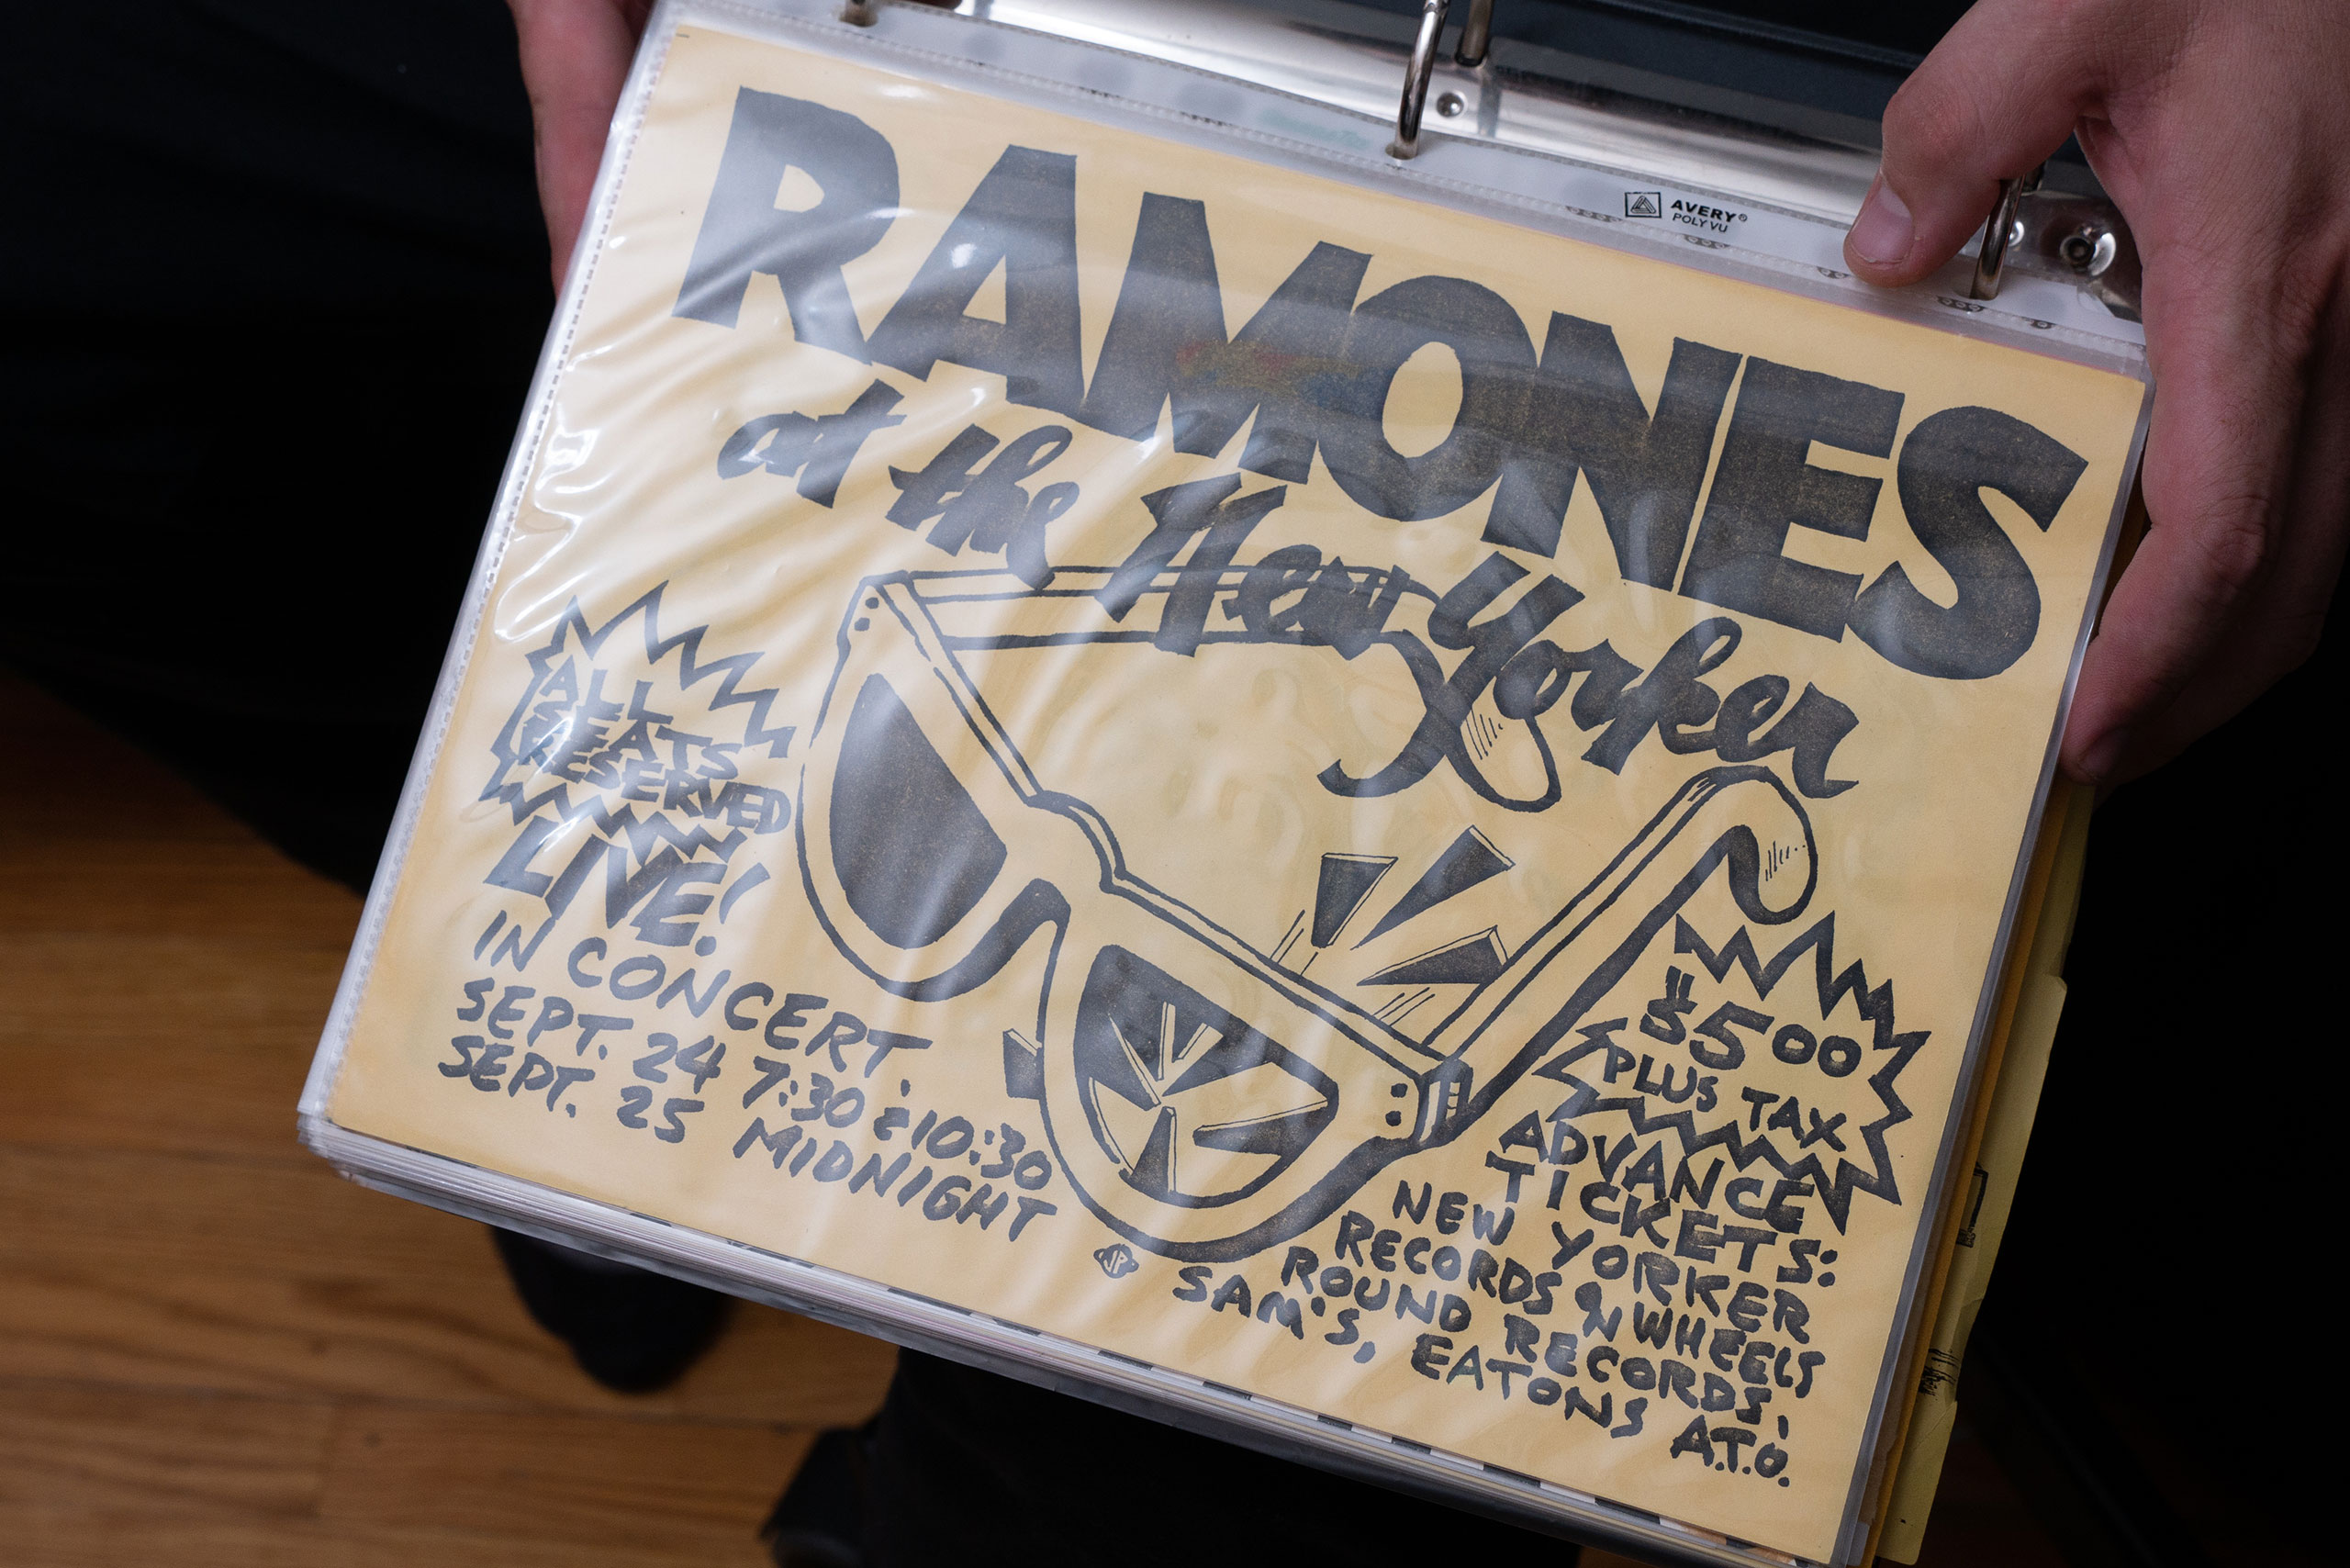 AVERY®
POLY VU
RAMONES
at the New Yorker
ALL
SEATS
RESERVED
LIVE!
IN CONCERT.
SEPT. 24 7:30 & 10:30
SEPT. 25 MIDNIGHT
$5.00
PLUS TAX
ADVANCE
TICKETS:
NEW YORKER
RECORDS ON WHEELS
ROUND RECORDS,
SAM'S, EATONS A.T.O.
JP